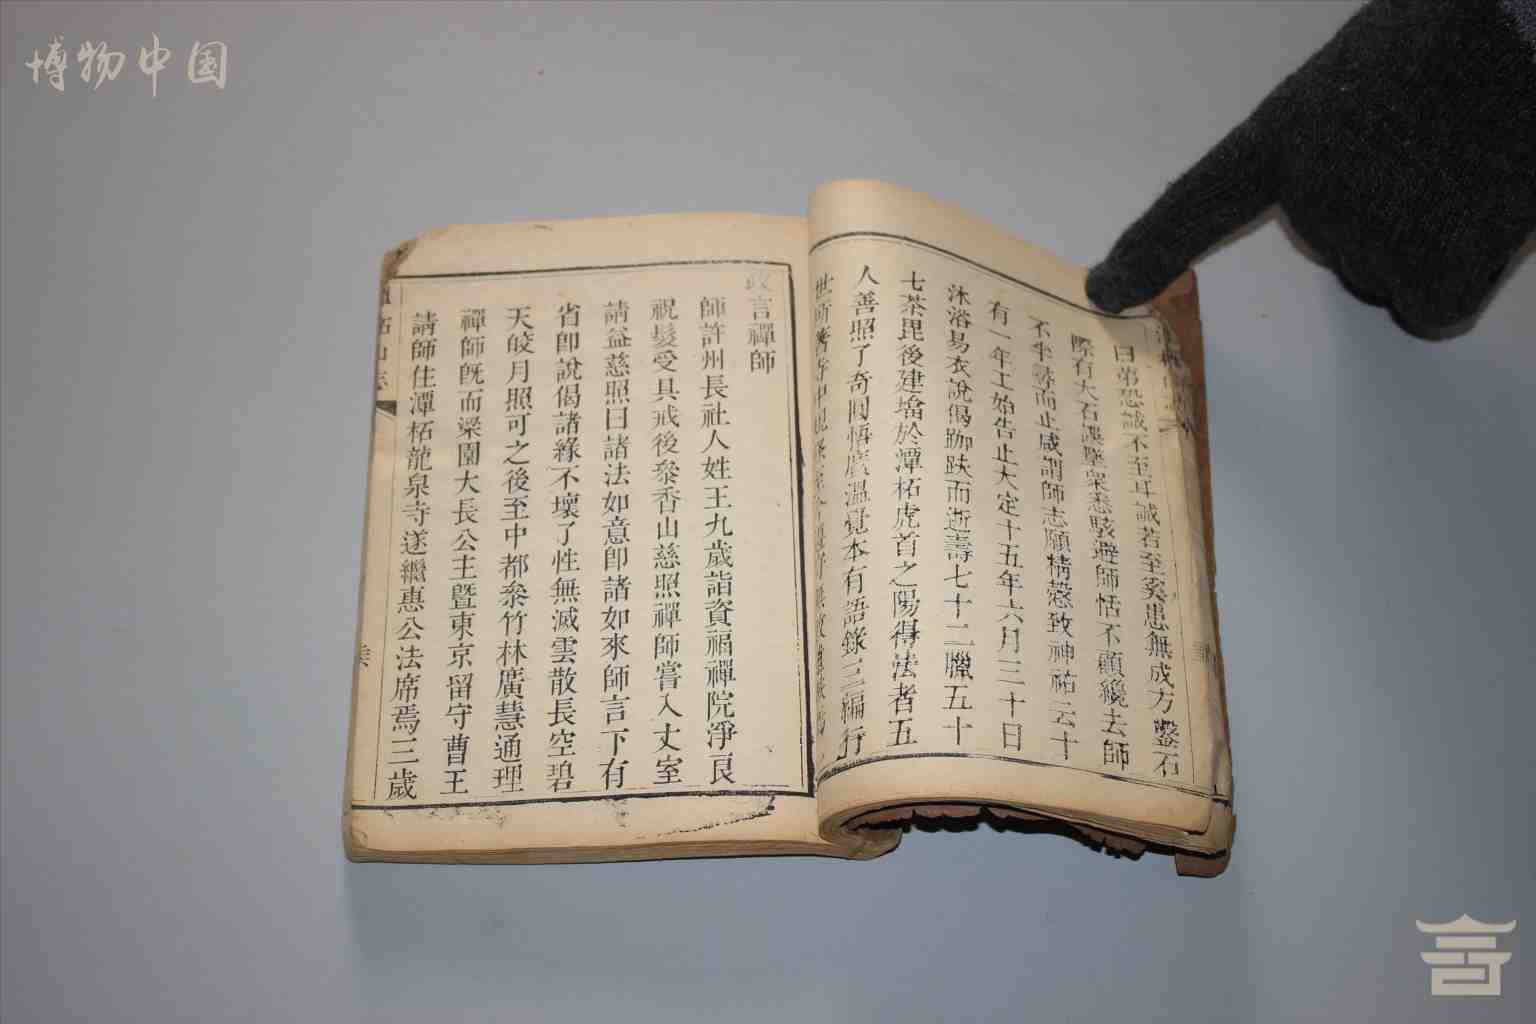 博物中国
曰弟恐誠不至耳誠若至奚患無成方鑿石
際有大石讙墜衆悉駭避師恬不顧纔去師
不半尋而止咸謂師志願精慤致神祐云十
有一年工始告止大定十五年六月三十日
沐浴易衣說偈跏趺而逝壽七十二臘五十
七茶毘後建塔於潭柘虎首之陽得法者五
人善照了奇圓悟廣温覺本有語錄三編行
世
政言禪師
師許州長社人姓王九歲詣資福禪院淨良
祝髮受具戒後叅香山慈照禪師嘗入丈室
請益慈照曰諸法如意卽諸如來師言下有
省卽說偈諸緣不壞了性無滅雲散長空碧
天皎月照可之後至中都叅竹林廣慧通理
禪師旣而梁園大長公主曁東京留守曹王
請師住潭柘龍泉寺遂繼惠公法席焉三歲
柘山志